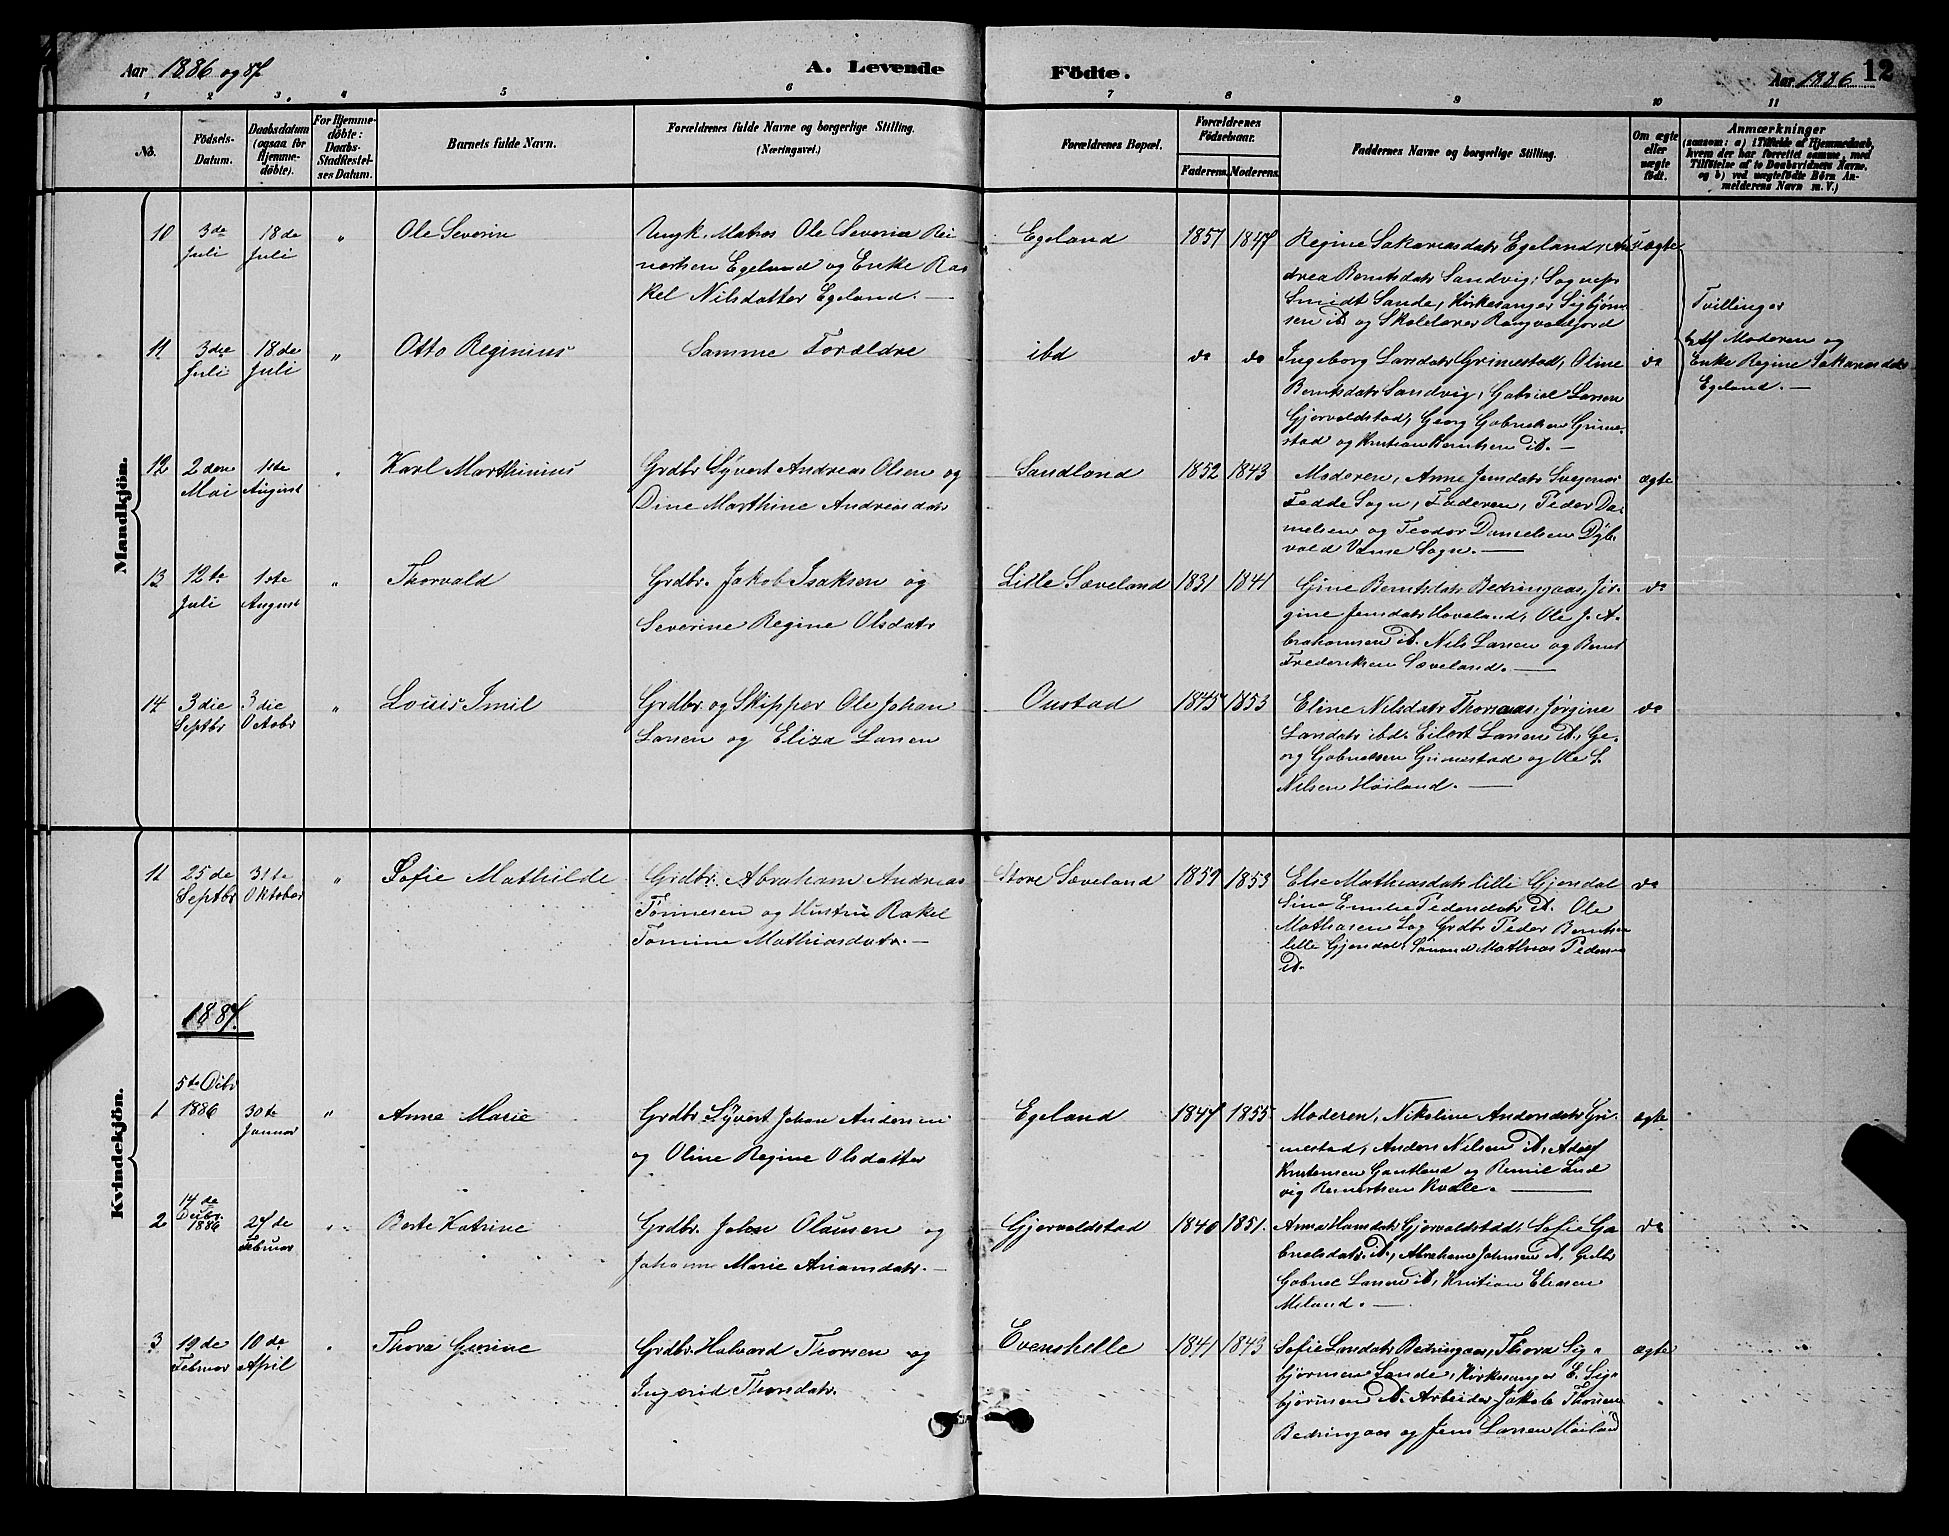 Aar 1886 og 87
A. Levende
Födte.
Aar 1886
12
1 2 3. 4 5 6 7 8 9 10 11
No.
Födsels-
Datum.
Daabsdatum
(ogsaa for
Hjemme-
döbte).
For Hjemme-
döbte:
Daabs-
Stadfestel-
ses Datum.
Barnets fulde Navn.
Forældrenes fulde Navne og borgerlige Stilling.
(Næringsvei.)
Forældrenes Bopæl.
Forældrenes
Födselsaar.
Faderens. Moderens.
Faddernes Navne og borgerlige Stilling.
Om ægte
eller
uægte
födt.
Anmærkninger
(saasom: a) i Tilfælde af Hjemmedaab,
hvem der har forrettet samme, med
Tilföielse af to Daabsvidners Navne,
og b) ved uægtefödte Börn An-
melderens Navn m. V.)
Mandkjön.
10
3de
Juli
18de
Juli
"
Ole Severin
Ungk. Matros Ole Severin Rei
nertsen Egeland og Enke Ra
kel Nilsdatter Egeland. —
Egeland
1857 1847
Regine Sakariasdatr Egeland, An
drea Berntsdatr Sandvig, Sognepr
Smidt Sande, Kirkesanger Sigbjørn
sen dt og Skolelærer Rangvaldfjord
uægte
Tvillinger
Moderen og
Enke Regine Sakariasdatr
Egeland. —
11
3die
Juli
18de
Juli
"
Otto Reginius
Samme Forældre
ibd
do do
Ingeborg Larsdatr Grimestad, Oline
Berntsdatr Sandvig, Gabriel Larsen
Gjervoldstad, Georg Gabrielsen Grime
stad og Kristian Berntsen dt. —
do
12
2den
Mai
1ste
August
"
Karl Marthinius
Grdbr Syvert Andreas Olsen og
Dine Marthine Andreasdatr
Sandland
1852 1843
Moderen, Anne Jensdatr Svejnes
Fedde Sogn, Faderen, Peder Da-
nielsen og Teodor Danielsen Dyb
vold Vanse Sogn. —
ægte
13
12te
Juli
1ste
August
"
Thorvald
Grdbr. Jakob Isaksen og
Severine Regine Olsdatr
Lille Sæveland
1831 1841
Gine Berntsdatr Bedringaas, Jør-
gine Jensdatr Hoveland, Ole J. A-
brahamsen dt. Nils Larsen og Bernt
Frederiksen Sæveland. —
do
14
3die
Septbr
3die
Octobr
"
Louis Imil
Grdbr og Skipper Ole Johan
Larsen og Eliza Larsen
Oustad
1845 1853
Eline Nilsdatr Thorsaas, Jørgine
Larsdatr ibd. Eilert Larsen dt, Ge-
org Gabrielsen Grimestad og Ole L
Nilsen Høiland. —
do
Kvindekjön.
11
25de
Septbr
31te
Oktober
"
Sofie Mathilde
Grdbr. Abraham Andreas
Tønnesen og Hustru Rakel
Tomine Mathiasdatr. —
Store Sæveland
1859 1853
Else Mathiasdatr lille Gjendal
Sine Emilie Pedersdatr dt. Ole
Mathiasen Log Grdbr Peder Berntsen
lille Gjendal, Sømand Mathias Pedersen
dt.
do
1887.
1
5te Dcbr
1886
30te
Januar
"
Anne Marie
Grdbr Syvert Johan Andersen
og Oline Regine Olsdatter
Egeland
1847 1855
Moderen, Nikoline Andersdatr Gri-
mestad, Anders Nilsen dt, Adolf
Kristensen Gautland og Remil Lud
vig Reinertsen Kvelle. —
ægte
2
14de
Decbr.
1886
27de
Februar
"
Berte Katrine
Grdbr. Johan Olausen og
Johanne Marie Ariansdatr. —
Gjervoldstad
1840 1851.
Anna Hansdatr Gjervoldstad, Sofie Ga
brielsdatr dt., Abraham Johnsen dt, Grdbr
Gabriel Larsen dt, Kristian Eliasen
Meland. —
do
3
19de
Februar
10de
April
"
Thora Gurine
Grdbr. Halvard Thorsen og
Ingerid Thorsdatr.
Evenshelle
1841 1843
Sofie Larsdatr Bedringaas, Thora Sig-
bjørnsen Sande, Kirkesanger E. Sig-
bjørnsen dt. Arbeider Jakob Thorsen
Bedringaas og Jens Larsen Høiland
ægte